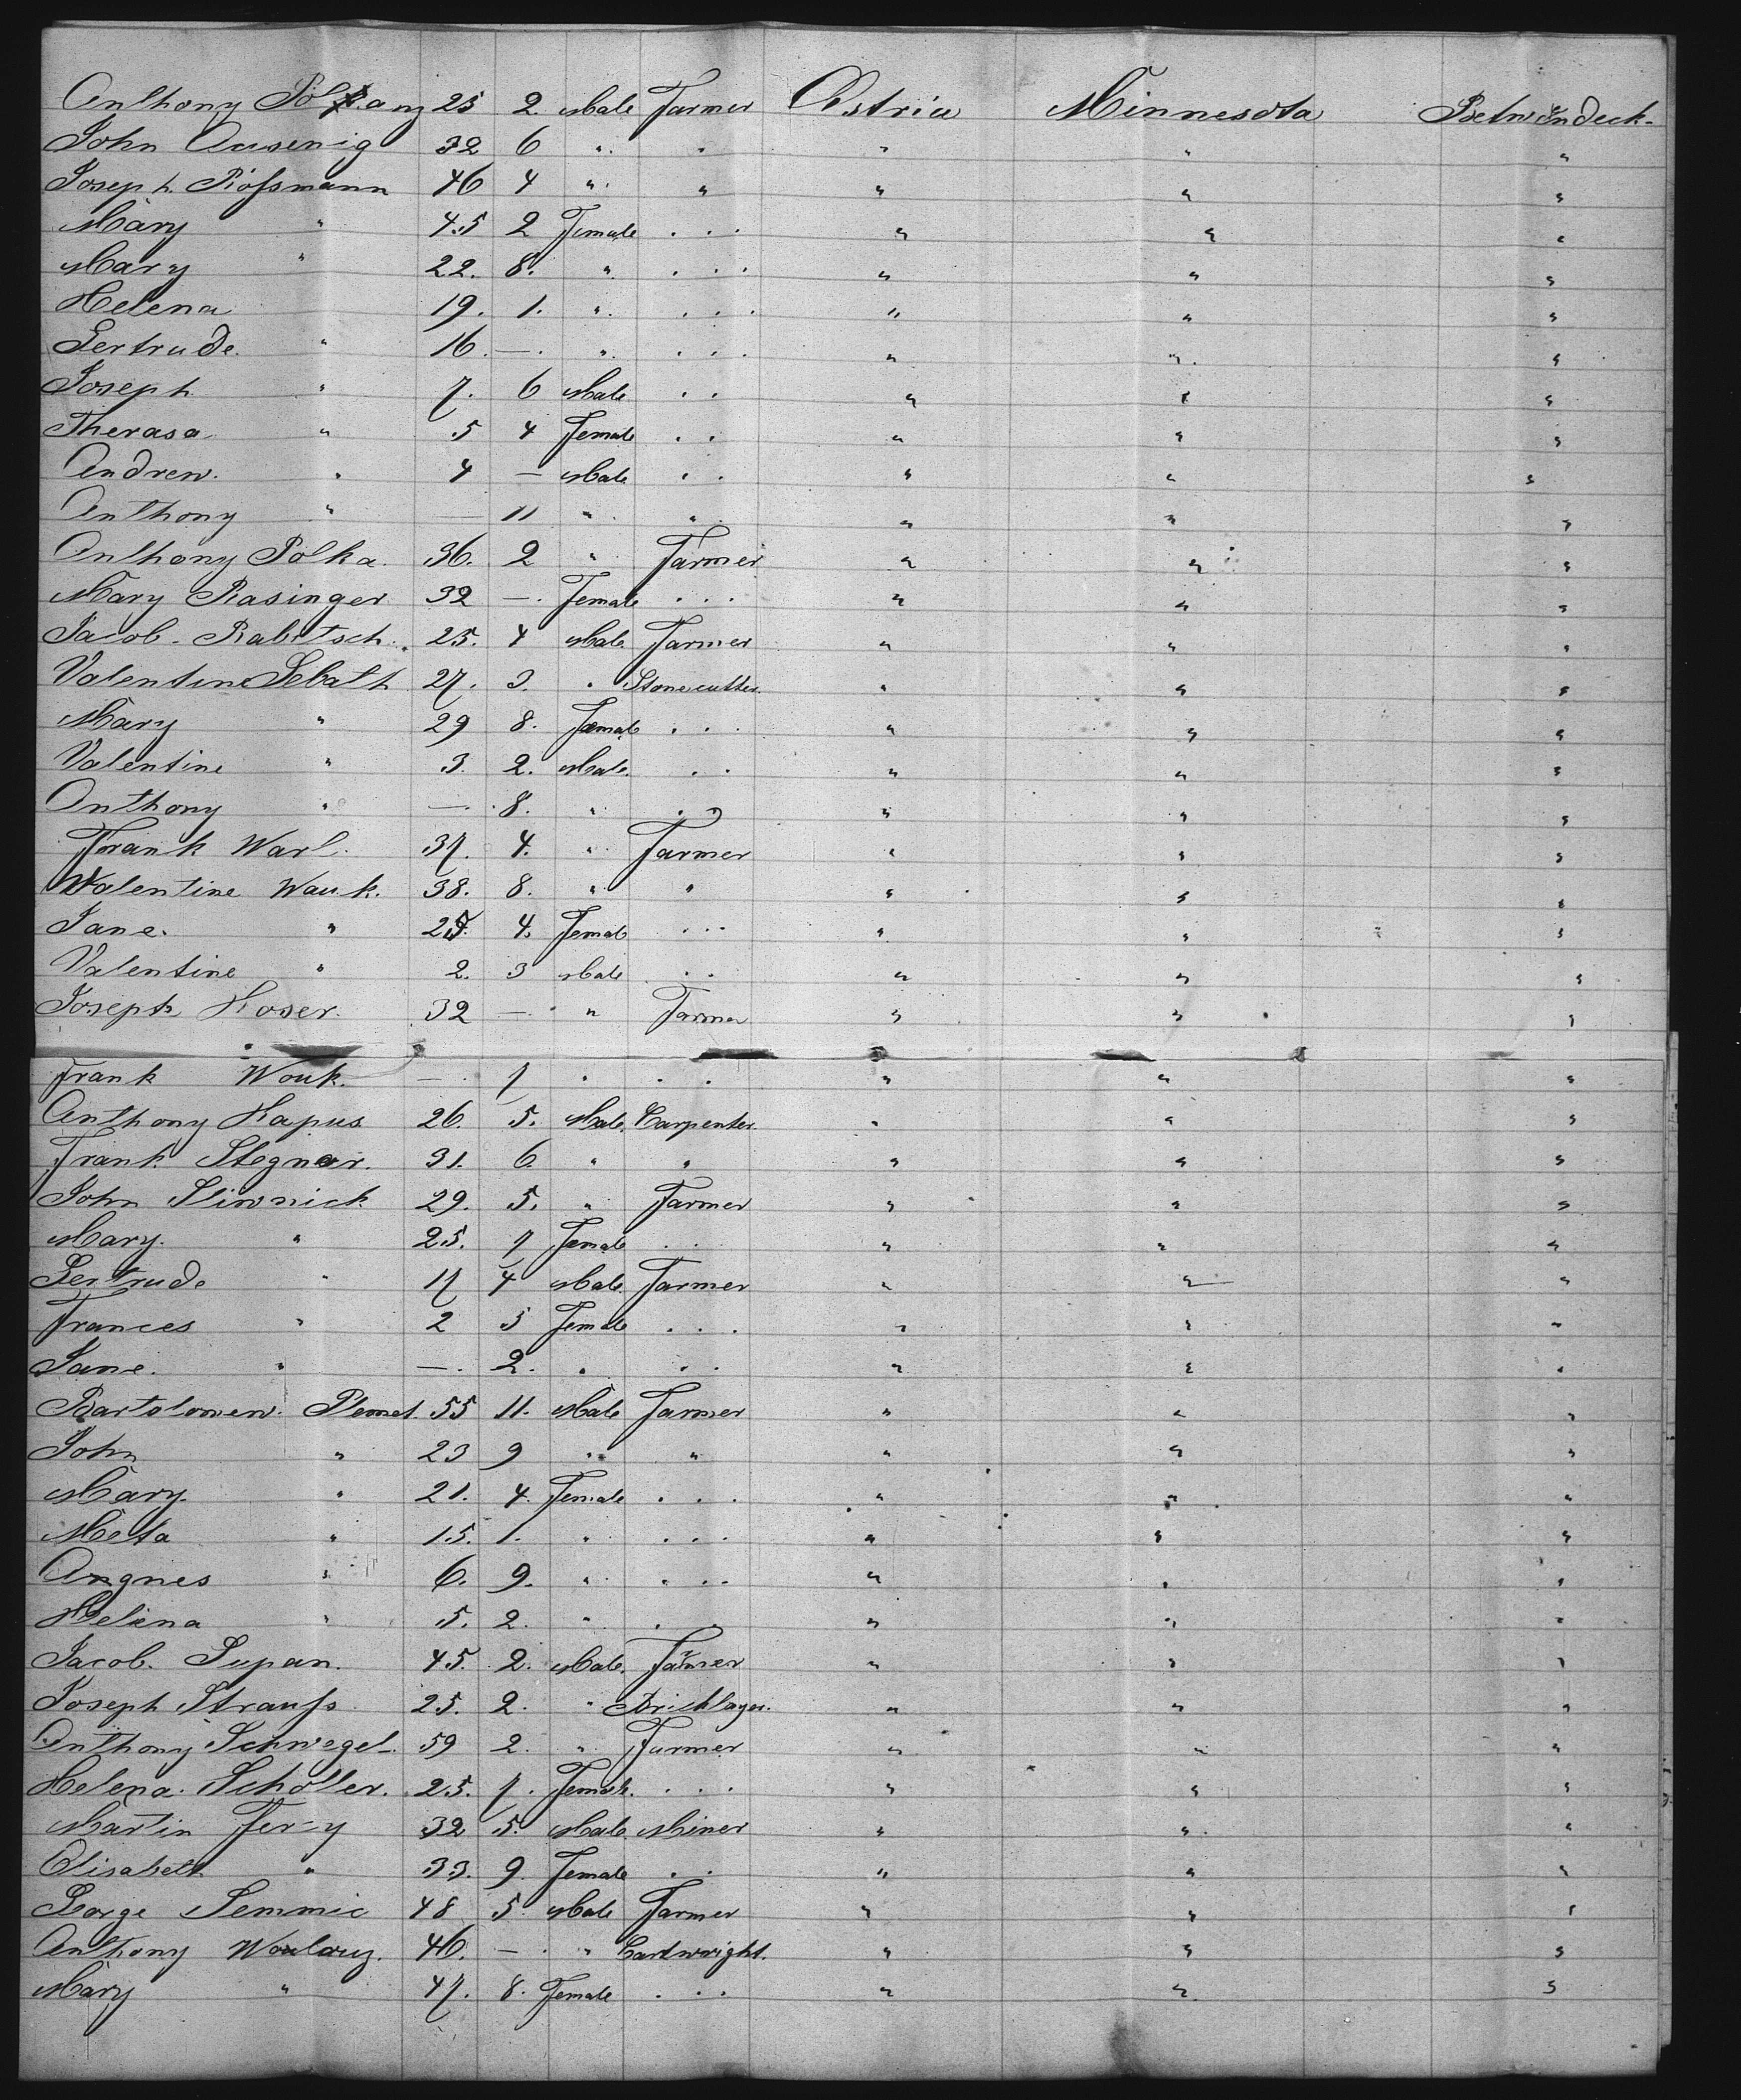 Anthony Polkanz 25 2. Male Farmer Astria Minnesota Betw. Endeck-
John Ausenig 32 6 " " " " "
Joseph Rofsmann 46 4 " " " " "
Mary " 45 2 Female . . . " " "
Mary " 22. 8. " . . . " " "
Helena 19. 1. " . . . " " "
Gertrude. " 16. —. " . . . " " "
Joseph " 7. 6 Male . . " " "
Therasa " 5 4 Female . . " " "
Andrew. " 4 — Male . . " " "
Anthony " — 11 " " " " "
Anthony Polka. 36. 2 " Farmer " " "
Mary Rasinger 32 —. Female . . . " " "
Jacob. Rabitsch. 25. 4 Male Farmer " " "
Valentine Sebath 27. 3. " Stonecutter. " " "
Mary " 29 8. Female . . . " " "
Valentine " 3. 2. Male. . . " " "
Anthony " —. 8. " . . " " "
Frank Warl. 37. 4. " Farmer " " "
Valentine Wauk. 38. 8. " " " " "
Jane. " 25. 4. Female . . . " " "
Valentine " 2. 3 Male . . " " "
Joseph Hoser. 32 —. " Farmer " " "
Frank Wouk. —. 7 " . . " " "
Anthony Hapus 26. 5. Male. Carpenter. " " "
Frank Stegnar. 31. 6. " " " " "
John Sliwnick 29. 5. " Farmer " " "
Mary. " 25. 7 Female . . " " "
Gertrude " 17 4 Male. Farmer " " "
Frances " 2 5 Female . . . " " "
Jane. " —. 2. " . . " " "
Bartolomew. Plemel. 55 11. Male Farmer " " "
John " 23 9 " " " " "
Mary. " 21. 4. Female . . . " " "
Meta " 15. 1. " . . . " " "
Angnes " 6. 9. " . . . " " "
Helena " 5. 2. " . . " " "
Jacob. Supan. 45. 2. Male. Farmer " " "
Joseph Straufs 25. 2. " Bricklayer. " " "
Anthony Schwegel. 59 2. " Farmer " " "
Helena. Scholler. 25. 7. Female. . . . " " "
Martin Ferjy 32 5. Male. Miner " " "
Elisabeth " 33. 9. Female . . " " "
George Semmic 48 5. Male Farmer " " "
Anthony 46. —. " Cartwright. " " "
Mary " 47. 8. Female . . . " " "